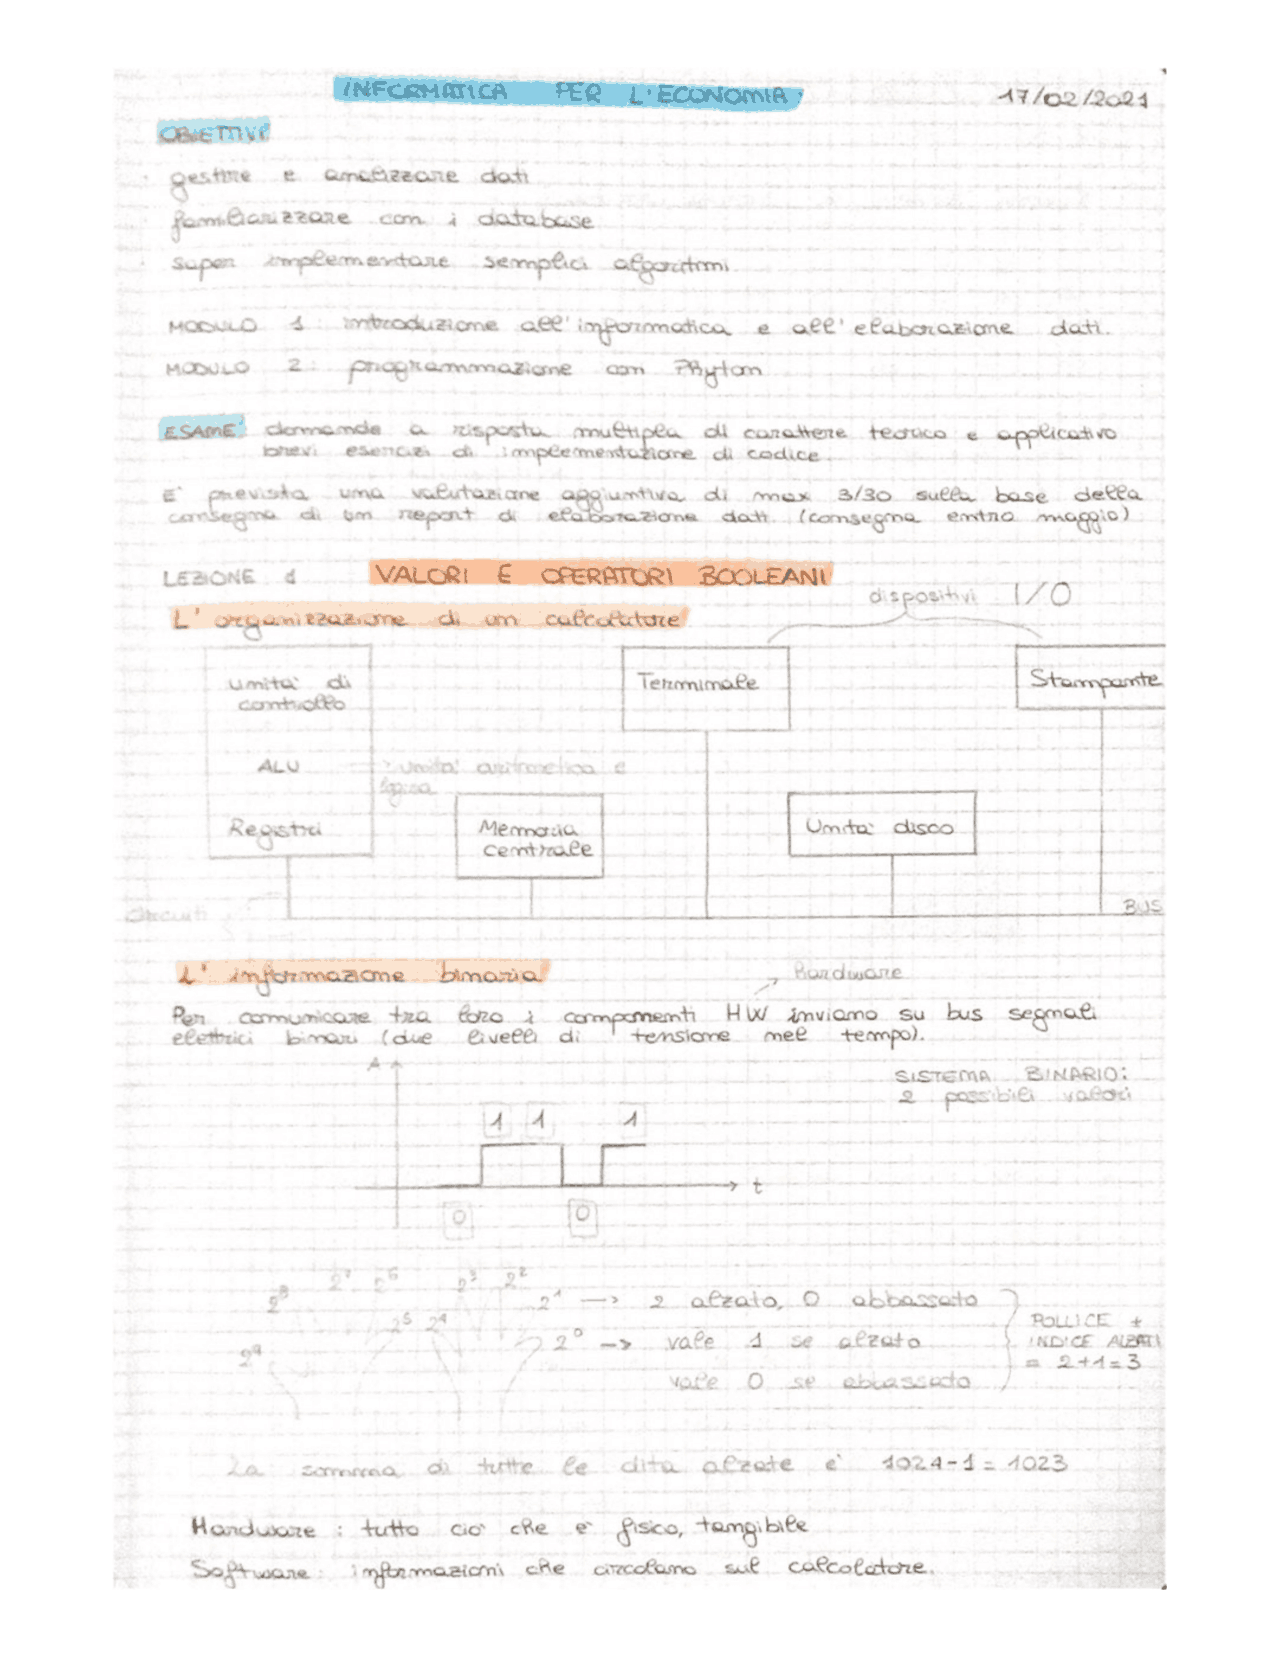 INFORMATICA PER L'ECONOMIA
17/02/2021
OBIETTIVI
gestire e analizzare dati
familiarizzare con i database
saper implementare semplici algoritmi
MODULO 1: introduzione all'informatica e all'elaborazione dati.
MODULO 2: programmazione con Phyton
ESAME: domande a risposta multipla di carattere teorico e applicativo
brevi esercizi di implementazione di codice.
E' prevista una valutazione aggiuntiva di max 3/30 sulla base della
consegna di un report di elaborazione dati (consegna entro maggio)
LEZIONE 1 VALORI E OPERATORI BOOLEANI
dispositivi I/O
L'organizzazione di un calcolatore
unita' di
controllo
Terminale
Stampante
ALU
unita' aritmetica e
logica
Registri
Memoria
centrale
Unita' disco
Circuiti
BUS
L'informazione binaria
hardware
Per comunicare tra loro i componenti HW inviamo su bus segnali
elettrici binari (due livelli di tensione nel tempo).
A
SISTEMA BINARIO:
2 possibili valori
1 1 1
t
0 0
2⁸ 2⁷ 2⁶ 2³ 2²
2¹ → 2 alzato, 0 abbassato
2⁵ 2⁴
2⁰ → vale 1 se alzato
2⁹
vale 0 se abbassato
POLLICE +
INDICE ALZATI
= 2+1=3
La somma di tutte le dita alzate e' 1024-1=1023
Hardware: tutto cio' che e' fisico, tangibile
Software: informazioni che circolano sul calcolatore.